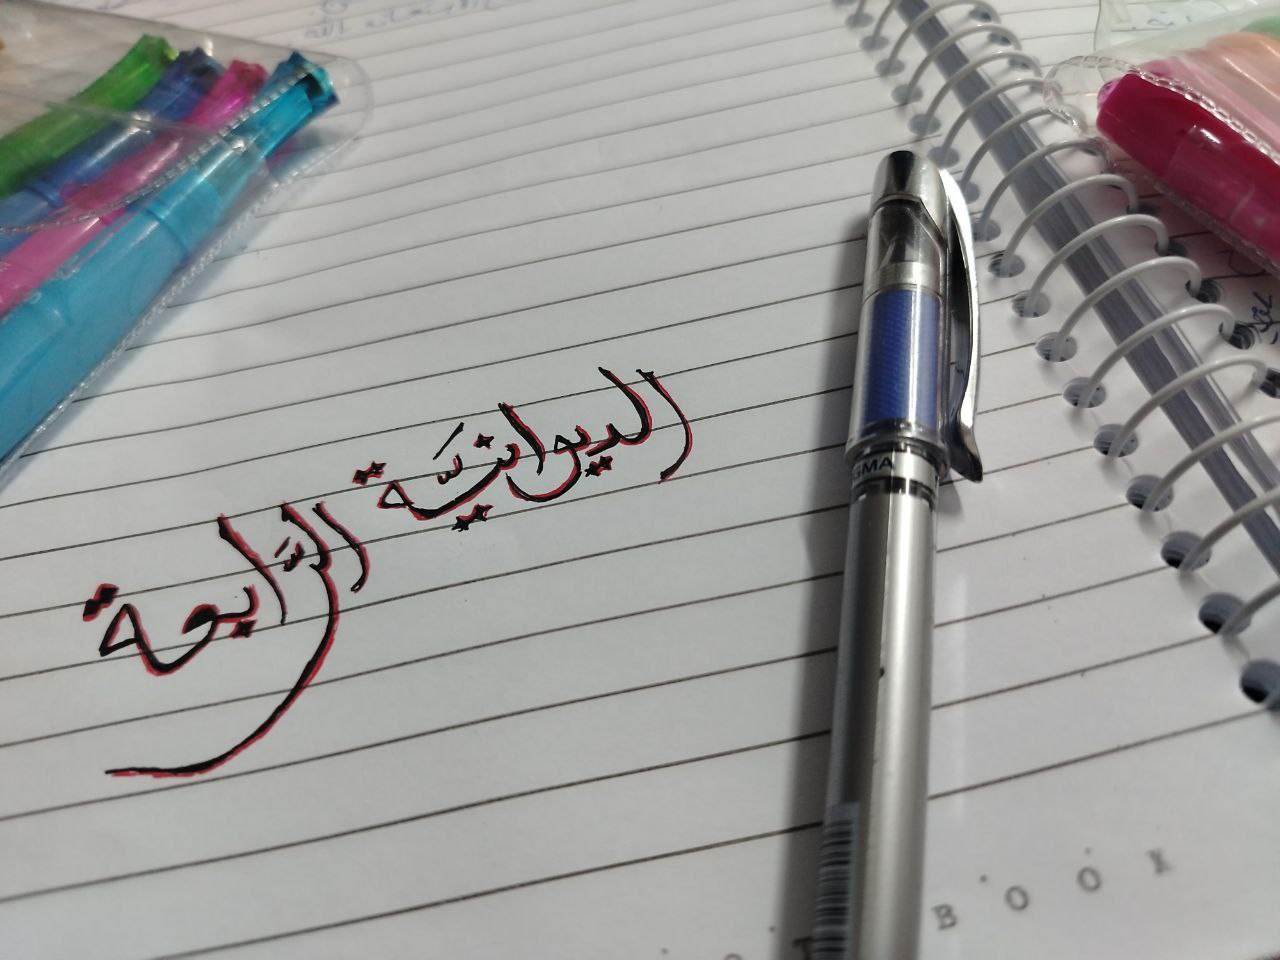 الديوانيَّة
الرَّابعة
GMA
BOOK